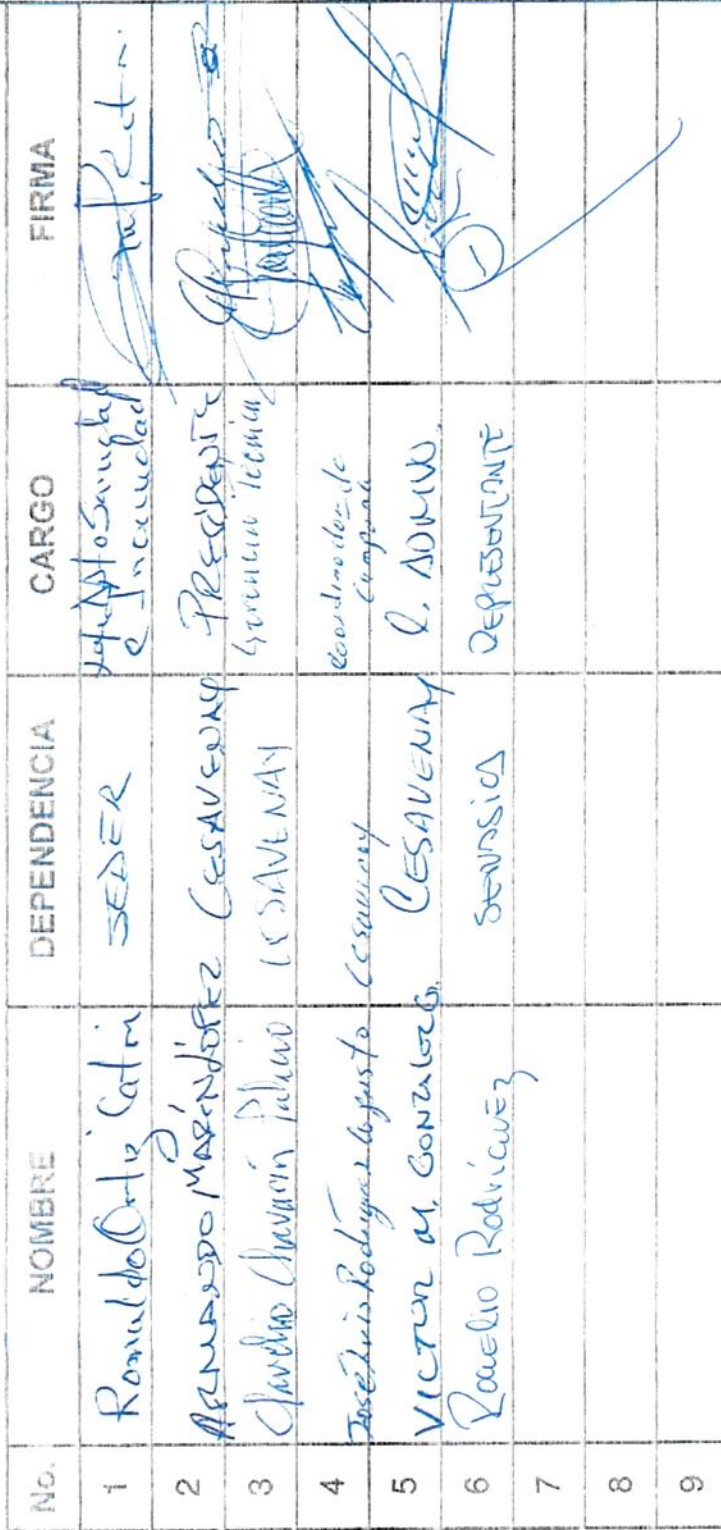 No. NOMBRE DEPENDENCIA CARGO FIRMA
1 Romualdo Ortiz Catin SEDER Sanidad e Inocuidad
2 ARMANDO MARÍN LÓPEZ CESAVENAY PRECIDENTE
3 Claudio Chavarin Palacio CESAVENAY Gerencia Técnica
4 José Luis Rodríguez Cesavenay Coordinador de Campaña
5 VICTOR M. GONZALEZ G. CESAVENAY C. ADMVO.
6 ROGELIO RODRÍGUEZ SENASICA REPRESENTANTE
7
8
9